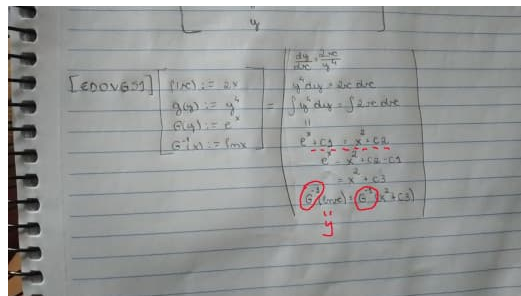 y
[EDOVGSS]
f(x) := 2x
g(y) := y⁴
G(y) := eˣ
G⁻¹(x) := lnx
=
dy/dx = 2x/y⁴
y⁴dy = 2x dx
∫y⁴dy = ∫2x dx
||
eˣ + C1 = x² + C2
eˣ = x² + C2 - C1
= x² + C3
G⁻¹(lnx) = G⁻¹(x² + C3)
||
y